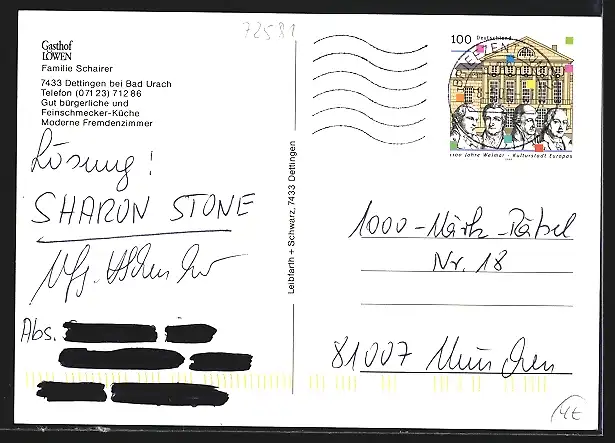 72581
Gasthof
LÖWEN
Familie Schairer
7433 Dettingen bei Bad Urach
Telefon (07123) 71286
Gut bürgerliche und
Feinschmecker-Küche
Moderne Fremdenzimmer
Lösung!
SHARON STONE
Abs.
Leibfarth + Schwarz, 7433 Dettingen
100 Deutschland
1100 Jahre Weimar · Kulturstadt Europas
1000-Märk-Rätsel
Nr. 18
81007 München
ME